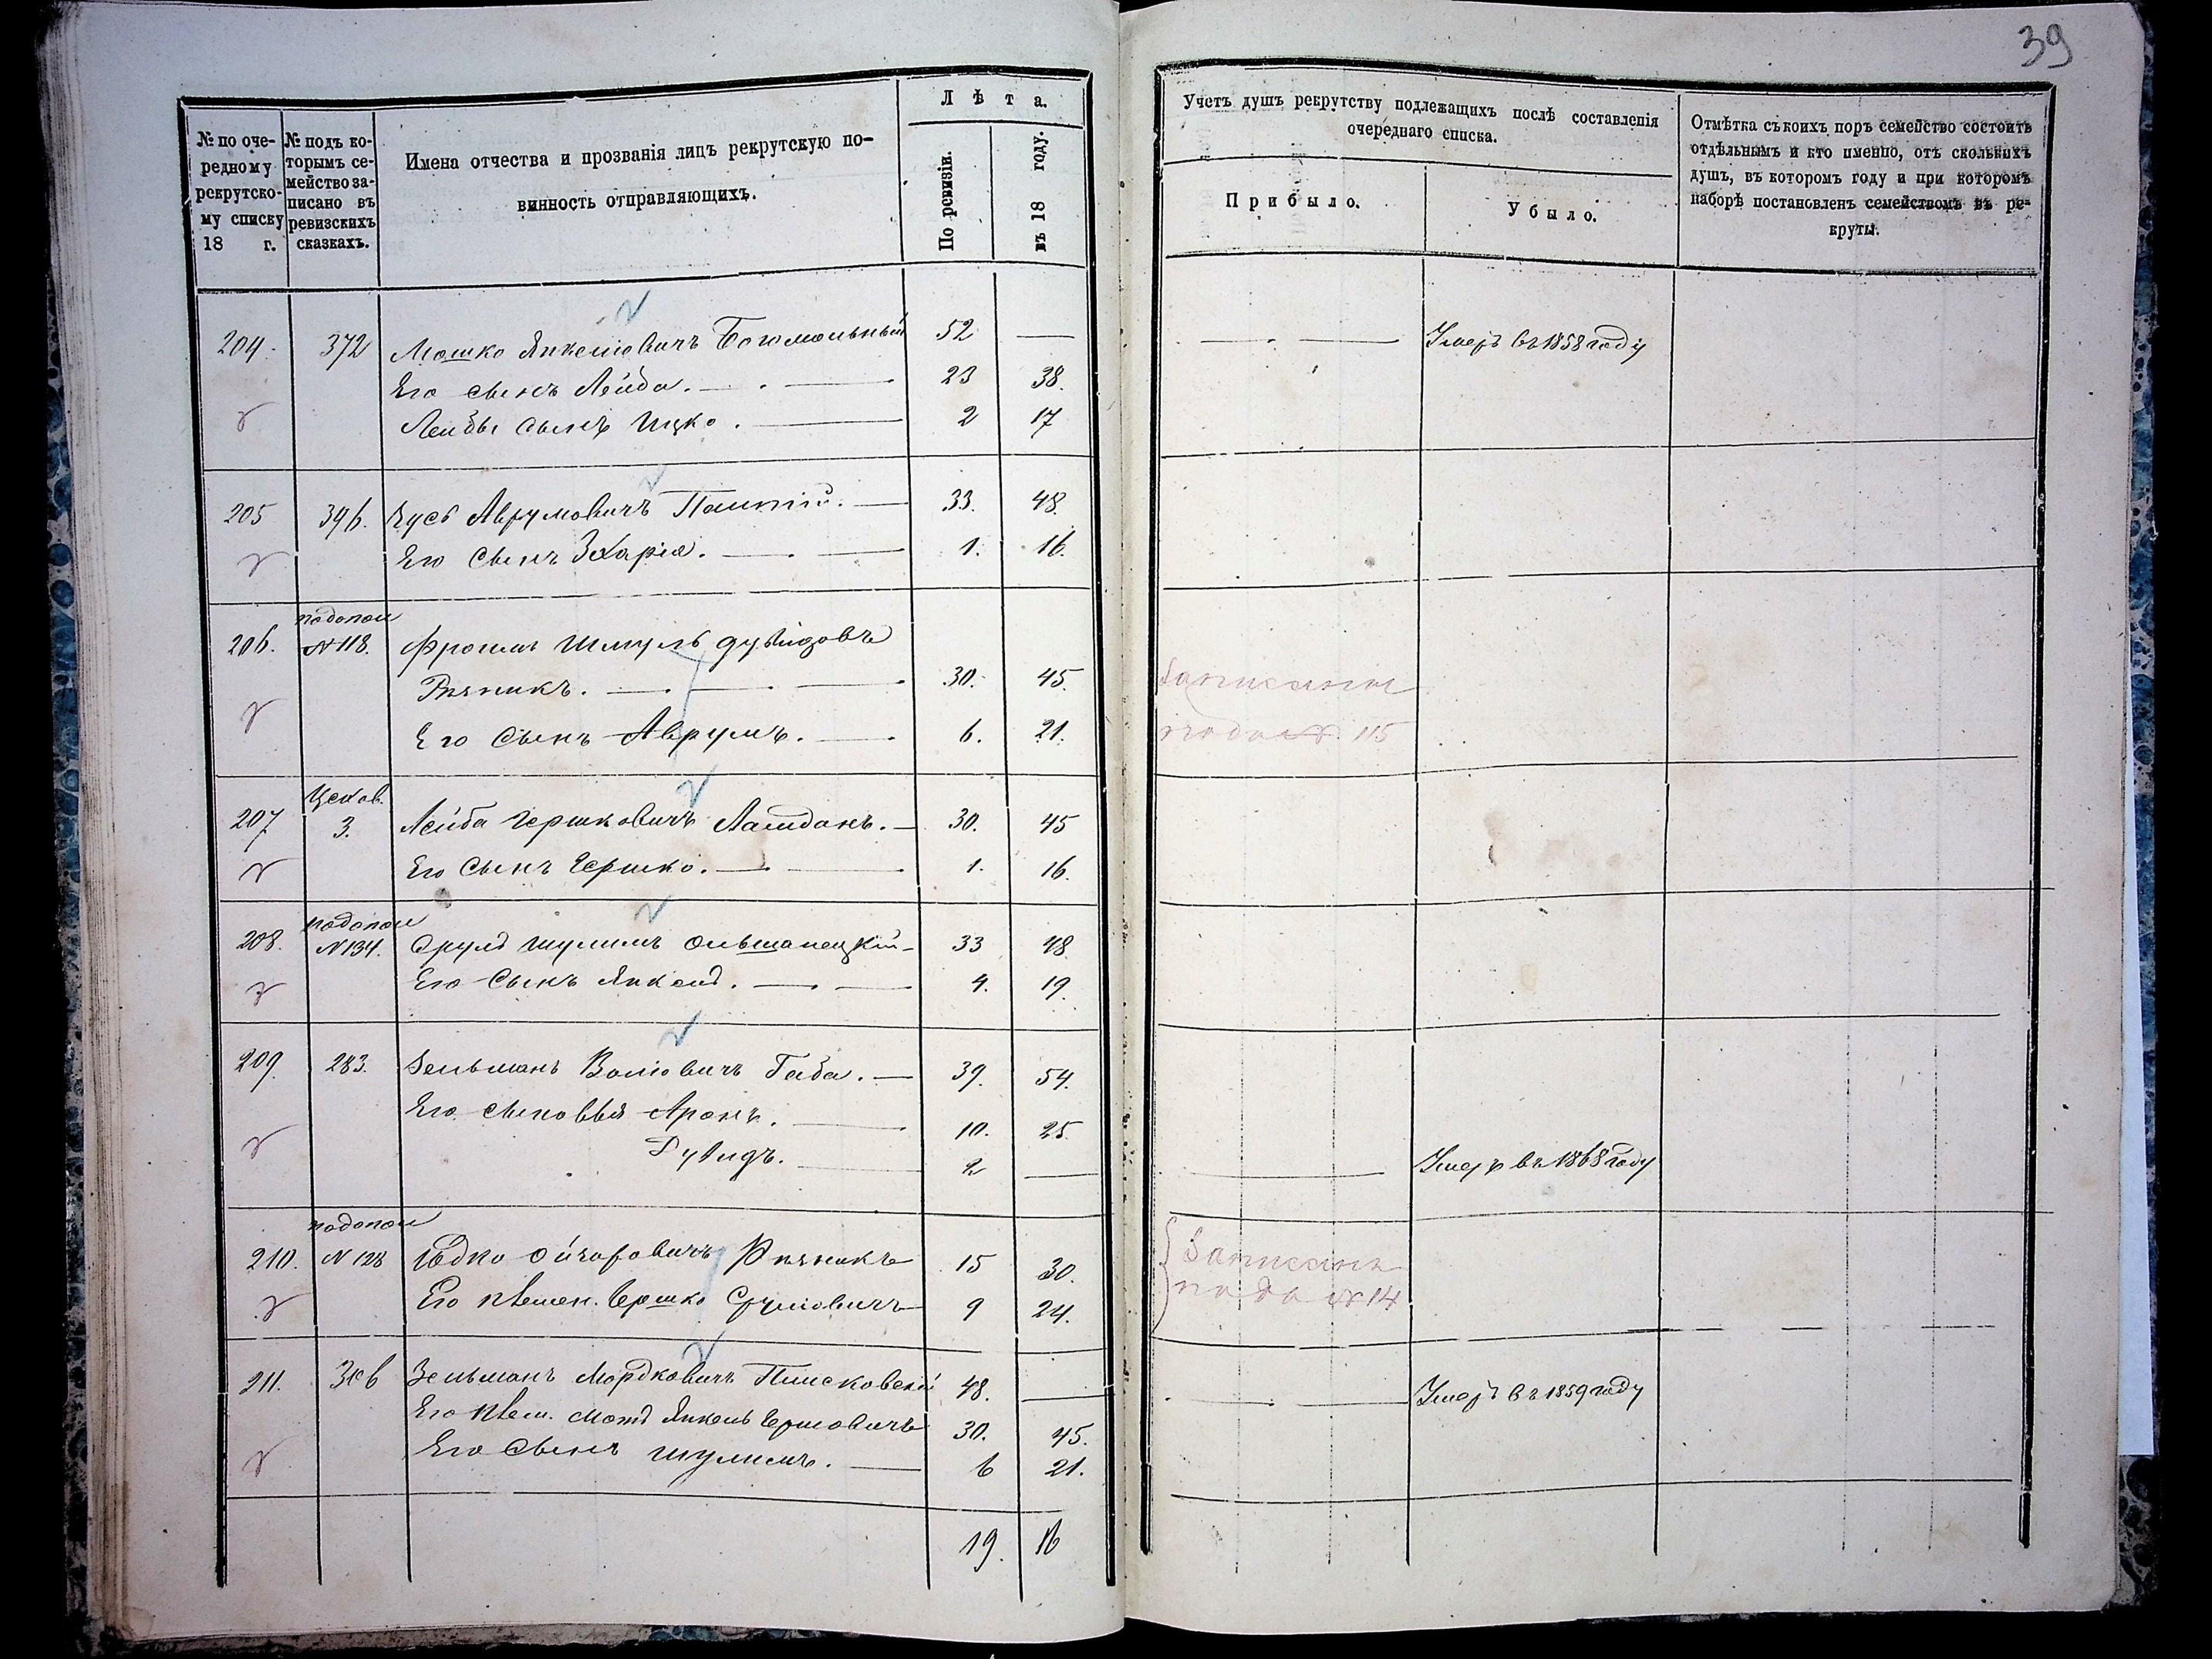 39
№ по оче-
редному
рекрутско-
му списку
18 г.
№ подъ ко-
торымъ се-
мейство за-
писано въ
ревизскихъ
сказкахъ.
Имена отчества и прозванія лицъ рекрутскую по-
винность отправляющихъ.
Лѣта.
По ревизіи.
въ 18 году.
Учетъ душъ рекрутству подлежащихъ послѣ составленія
очереднаго списка.
Прибыло.
Убыло.
Отмѣтка съ коихъ поръ семейство состоитъ
отдѣльнымъ и кто именно, отъ сколькихъ
душъ, въ которомъ году и при которомъ
наборѣ постановленъ семействомъ въ ре-
круты.
204. 372 Мошко Янкелiовичъ Богомольный 52 — Умеръ въ 1858 году
Его сынъ Лейба. 23 38.
Лейбы сынъ Ицко. 2 17
205 396. Аврумовичъ 33. 48.
Его Сынъ Захарія. 1. 16.
206. подопол №118. Фроимъ Шмуль Дувидовъ
Рѣзникъ. 30. 45. Записанъ
Его Сынъ Аврумъ. 6. 21. подъ № 115
207 3. Лейба Гершковичъ Ламданъ. 30. 45
Его Сынъ Гершко. 1. 16.
208. подопол №134. Сруль Шулимъ Ольшанецкій 33 48
Его Сынъ Янкель. 4. 19.
209. 283. Зельманъ Волiовичъ Габа. 39. 54.
Его сыновья Аронъ. 10. 25.
Дувидъ. 2 — Умеръ въ 1868 году
210. подопол №128 Рѣзникъ 15 30. Записанъ
Его племен. Гершко Срулiовичъ 9 24. подъ № 14
211. Зельманъ Мордковичъ Плисковскій 48. — Умеръ въ 1859 году
Его плем. Янкель 30. 45.
Его Сынъ Шулимъ. 6 21.
19. 16